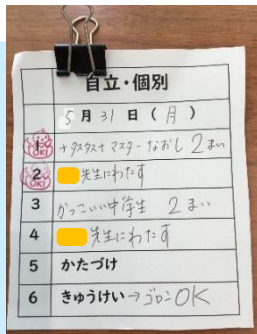 自立・個別
5月31日(月)
1 +タスタス+マスターなおし2まい
2 先生にわたす
3 かっこいい中学生 2まい
4 先生にわたす
5 かたづけ
6 きゅうけい→ゴロンOK